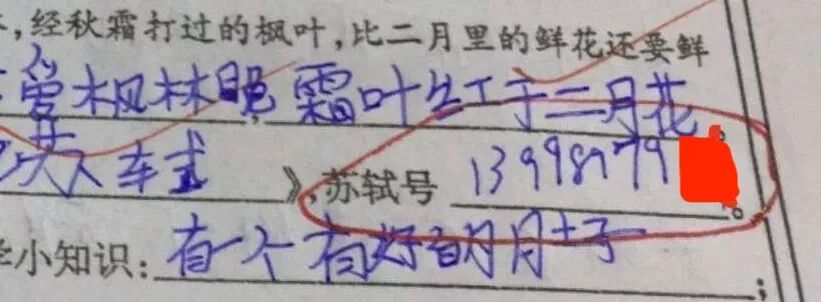 ,经秋霜打过的枫叶,比二月里的鲜花还要鲜
爱枫林晚 霜叶红于二月花
人车式》,苏轼号 13998979
小知识:有一个 有好 月